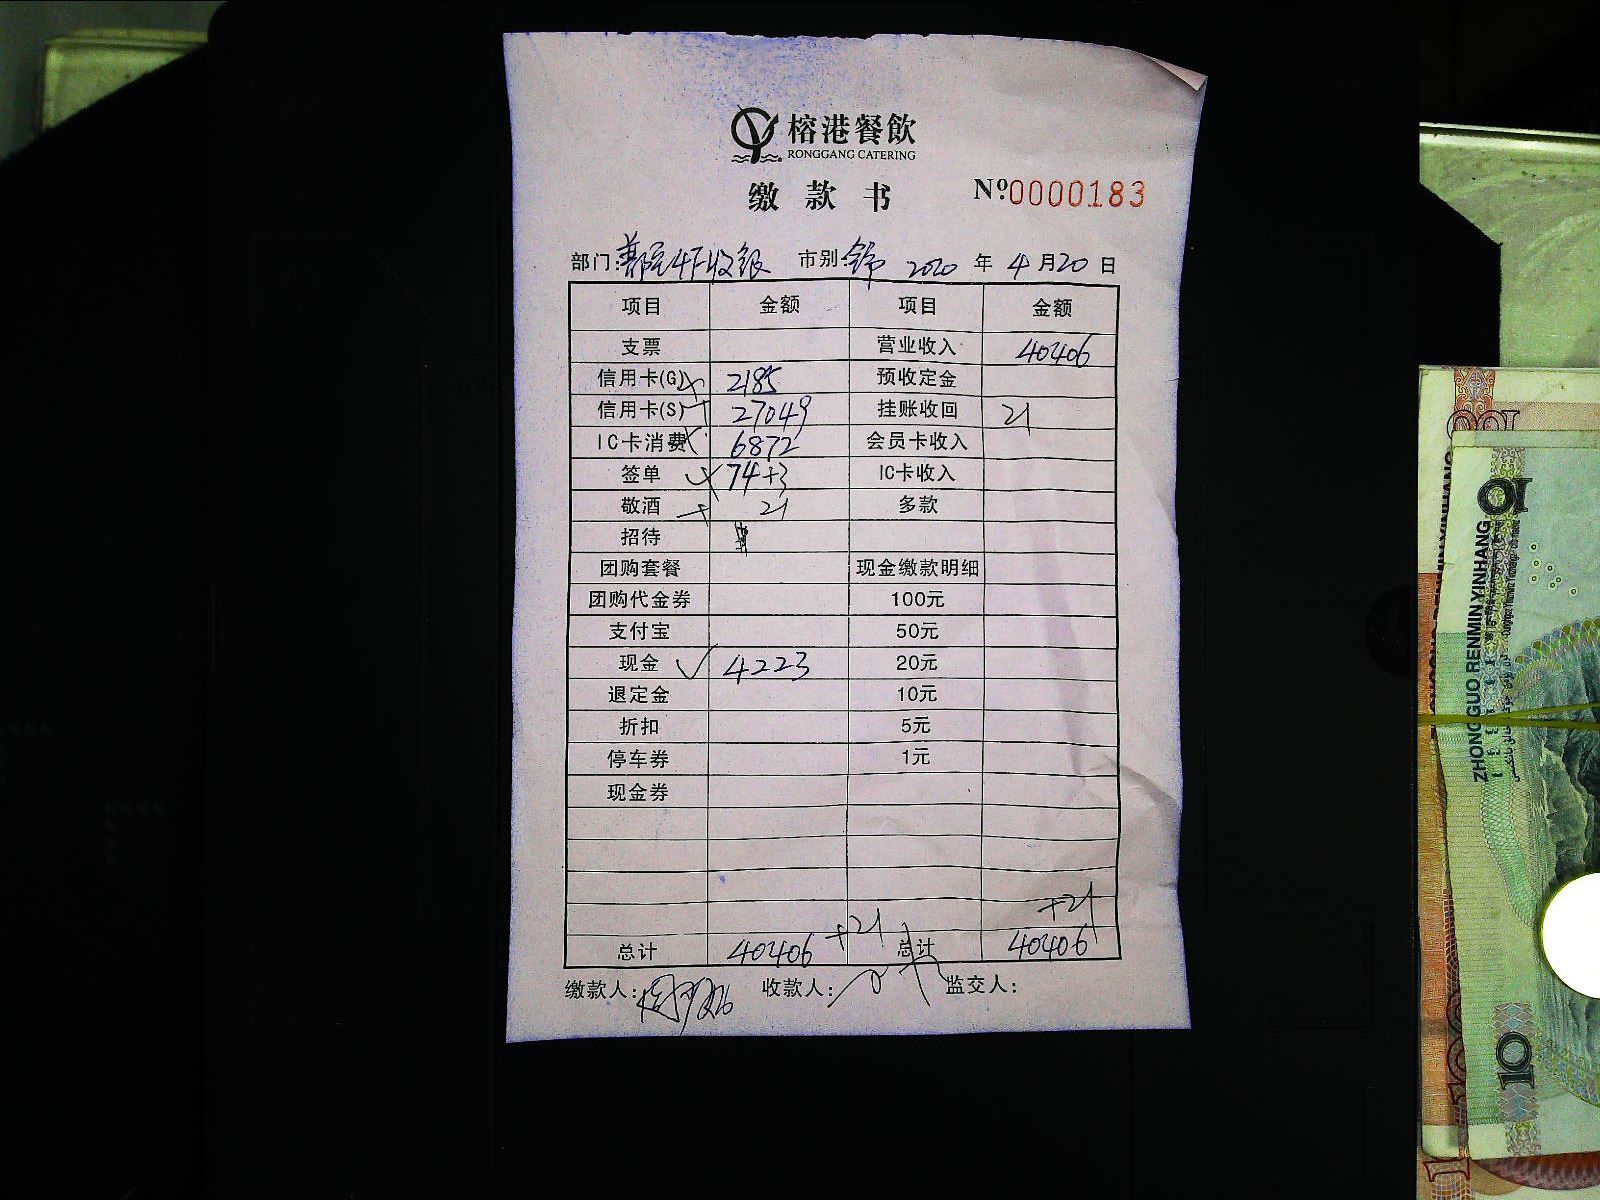 榕港餐飲
RONGGANG CATERING
缴款书 №0000183
部门: 收银 市别: 2020 年 4 月 20 日
项目 金额 项目 金额
支票 营业收入 40406
信用卡(G) 2185 预收定金
信用卡(S) 27049 挂账收回 21
IC卡消费 6872 会员卡收入
签单 74+3 IC卡收入
敬酒 21 多款
招待
团购套餐 现金缴款明细
团购代金券 100元
支付宝 50元
现金 4223 20元
退定金 10元
折扣 5元
停车券 1元
现金券
+21
总计 40406 +21 总计 40406
缴款人: 收款人: 监交人:
ZHONGGUO RENMIN YINHANG
10